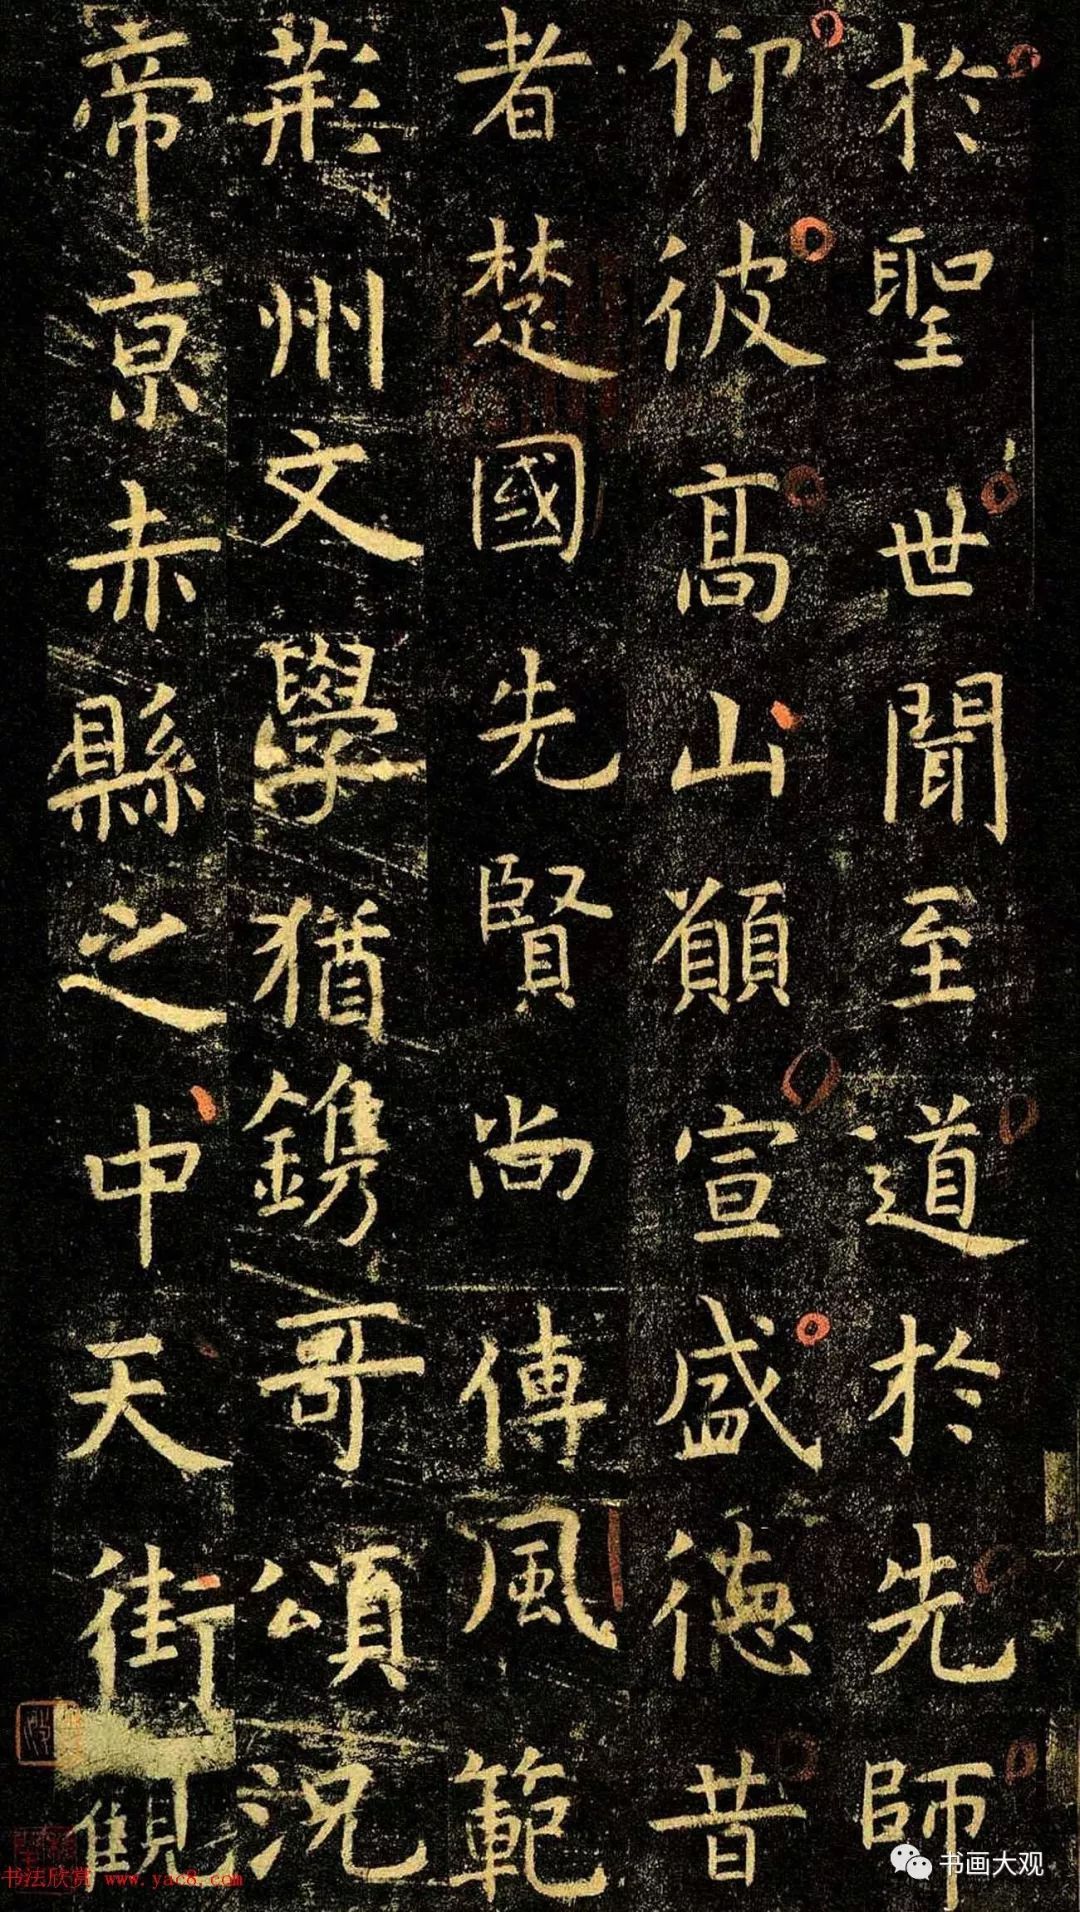 於聖世聞至道於先師
仰彼高山願宣盛德昔
者楚國先賢尚傳風範
荊州文學猶鐫哥頌況
帝京赤縣之中天街觀
书画大观
书法欣赏 www.yac8.com